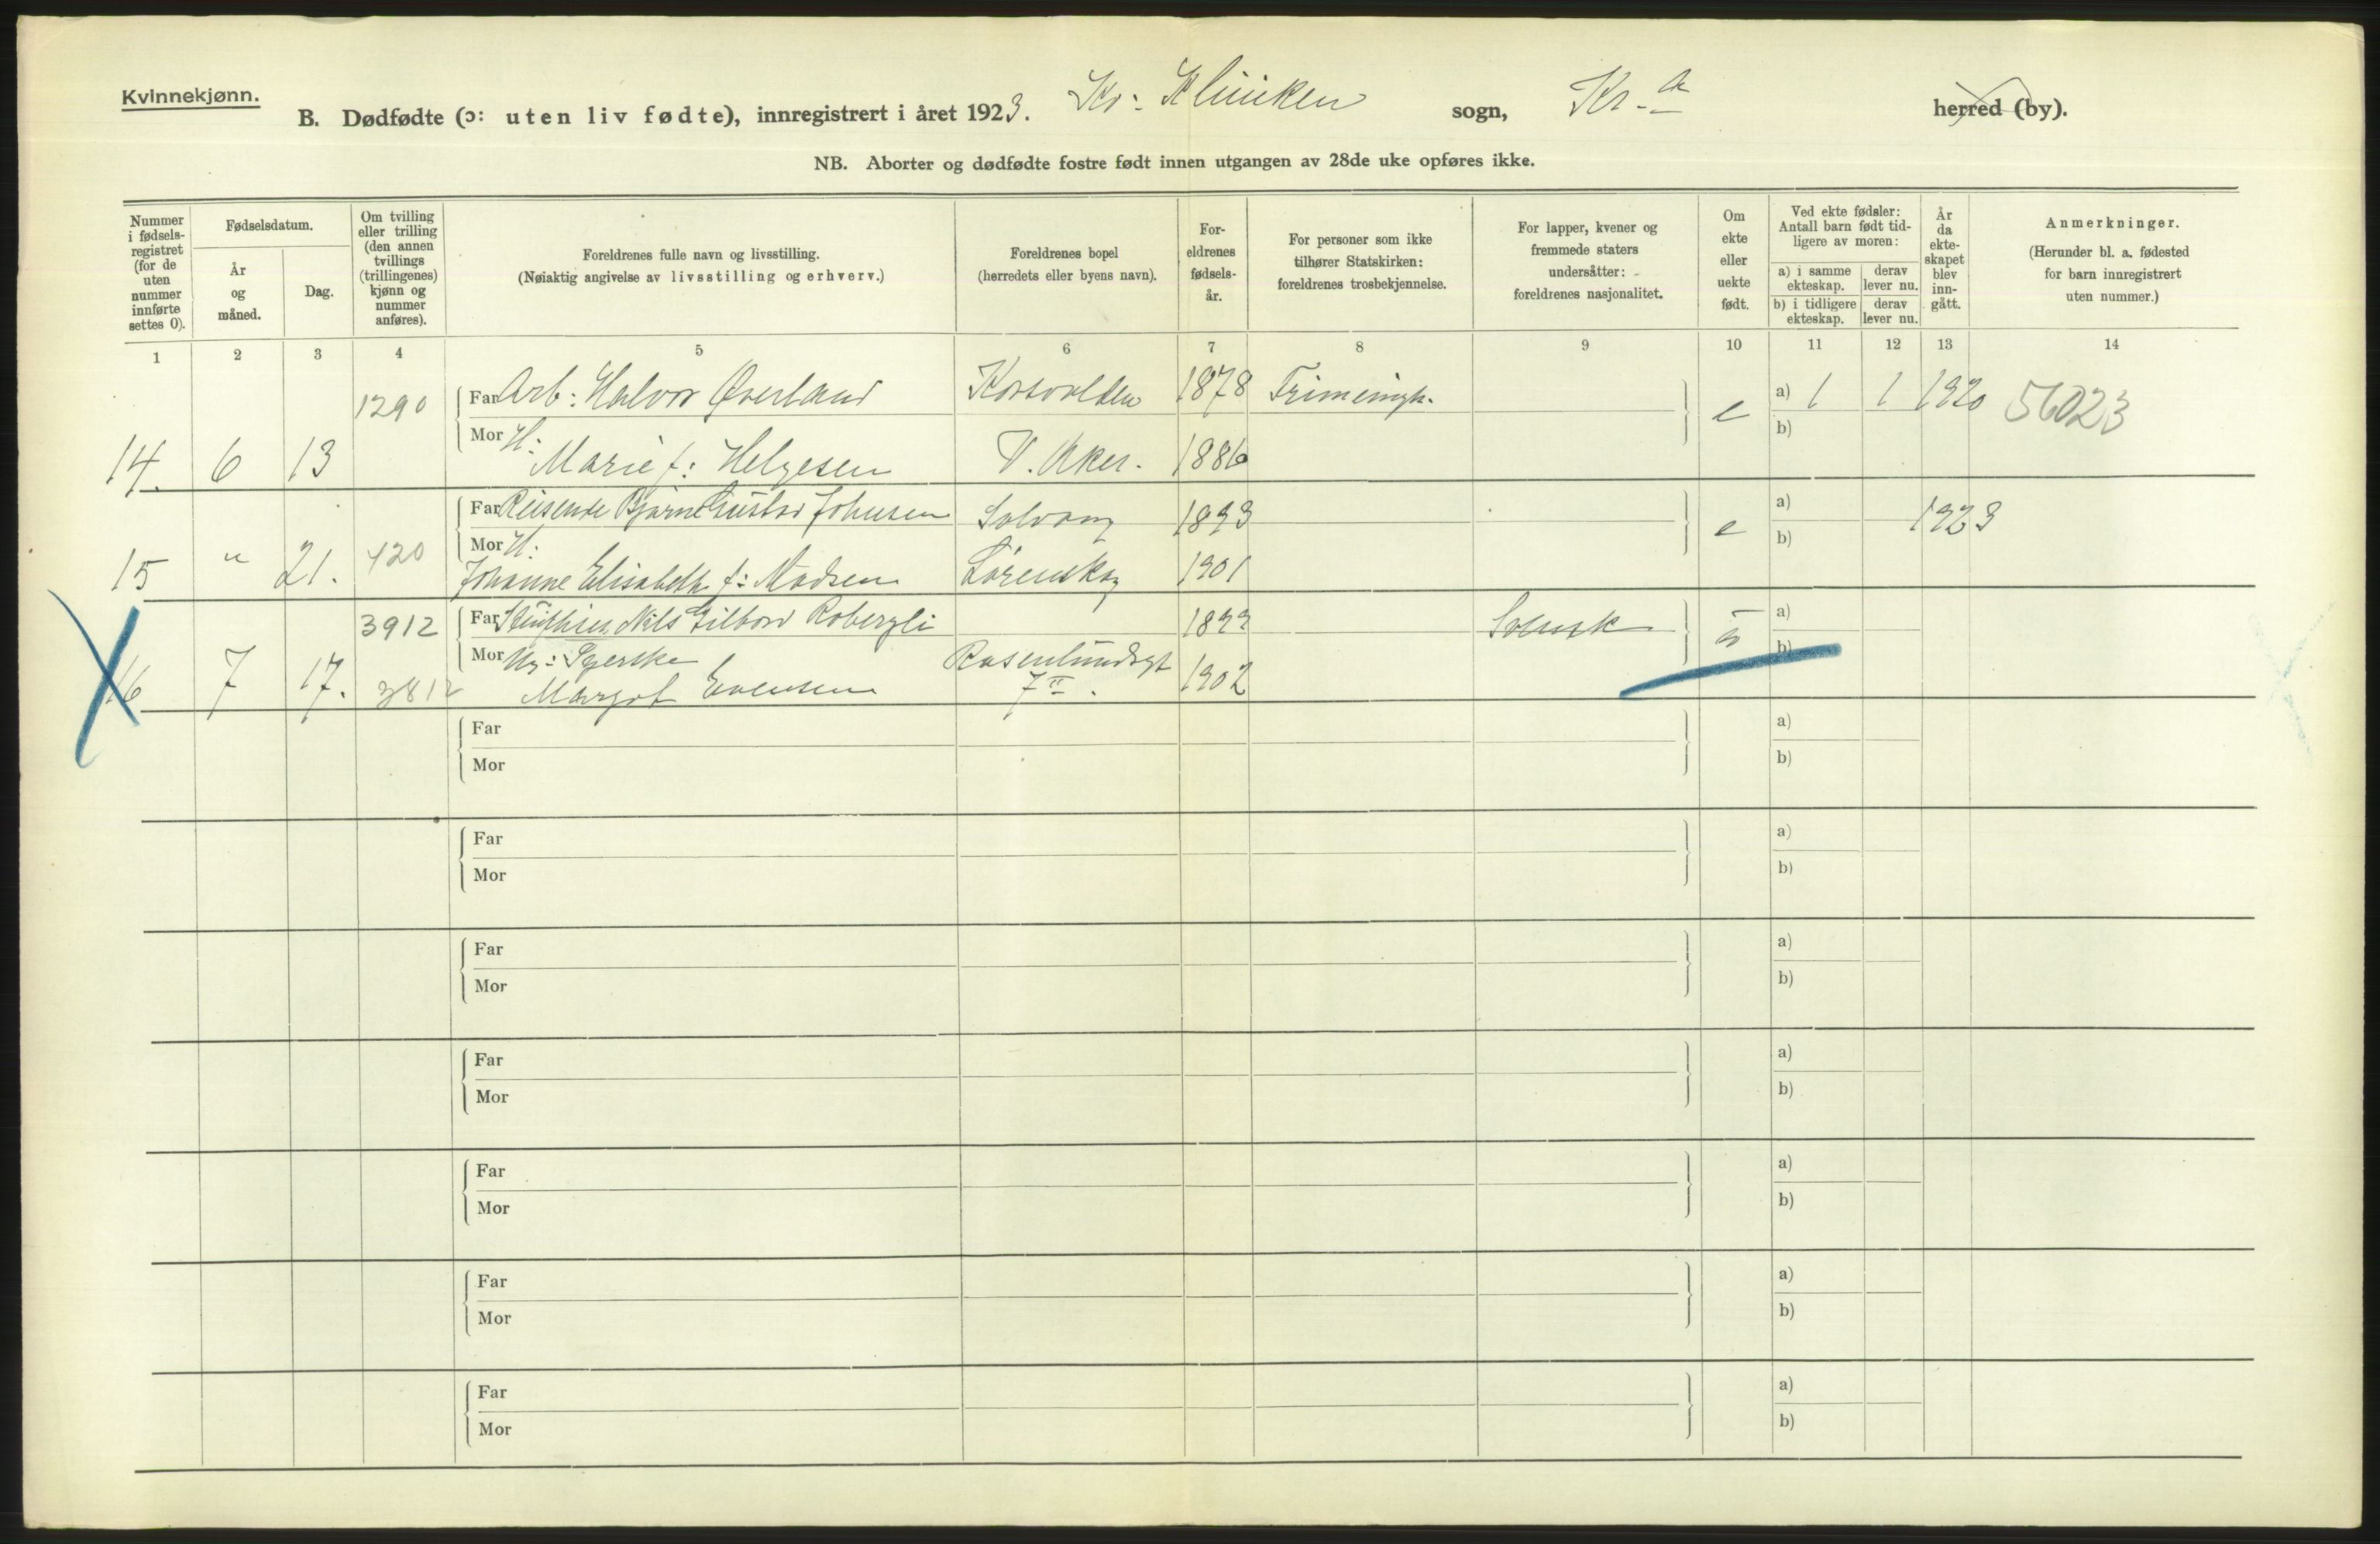 Kvinnekjønn.
B. Dødfødte (ɔ: uten liv fødte), innregistrert i året 1923. Kv: Kliniken sogn, Kr.a herred (by).
NB. Aborter og dødfødte fostre født innen utgangen av 28de uke opføres ikke.
Nummer i fødsels-registret (for de uten nummer innførte settes 0).
Fødselsdatum.
År og måned.
Dag.
Om tvilling eller trilling (den annen tvillings (trillingenes) kjønn og nummer anføres).
Foreldrenes fulle navn og livsstilling.
(Nøiaktig angivelse av livsstilling og erhverv.)
Foreldrenes bopel
(herredets eller byens navn).
For-eldrenes fødsels-år.
For personer som ikke tilhører Statskirken: foreldrenes trosbekjennelse.
For lapper, kvener og fremmede staters undersåtter: foreldrenes nasjonalitet.
Om ekte eller uekte født.
Ved ekte fødsler: Antall barn født tid-ligere av moren:
a) i samme ekteskap. derav lever nu.
b) i tidligere ekteskap. derav lever nu.
År da ekte-skapet blev inn-gått.
Anmerkninger.
(Herunder bl. a. fødested for barn innregistrert uten nummer.)
1 2 3 4 5 6 7 8 9 10 11 12 13 14
1290 Far Arb: Halvor Øverland 1878 e a) 1 1 1920 56023
Mor H: b)
14. 6 13 Marie f: Helgesen V. Aker. 1886
Far Reisende Bjarne Gustav Johnsen Solvang 1893 e a) 1923
420 Mor H: b)
15 " 21. Johanne Elisabeth f: Madsen Lørenskog 1901
3912 Far Nils Robergli Svensk a)
Mor Ug: Rosenlundsgt b)
16 7 17. 3812 Margot Evensen 7 II. 1902
Far a)
Mor b)
Far a)
Mor b)
Far a)
Mor b)
Far a)
Mor b)
Far a)
Mor b)
Far a)
Mor b)
Far a)
Mor b)